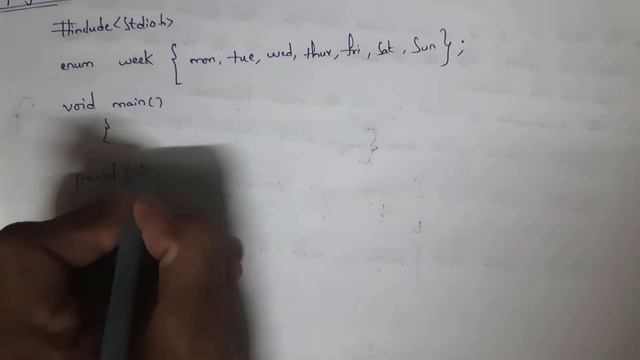 #include<stdio.h>
enum week { mon, tue, wed, thur, fri, sat, sun } ;
void main()
{
printf ("
}